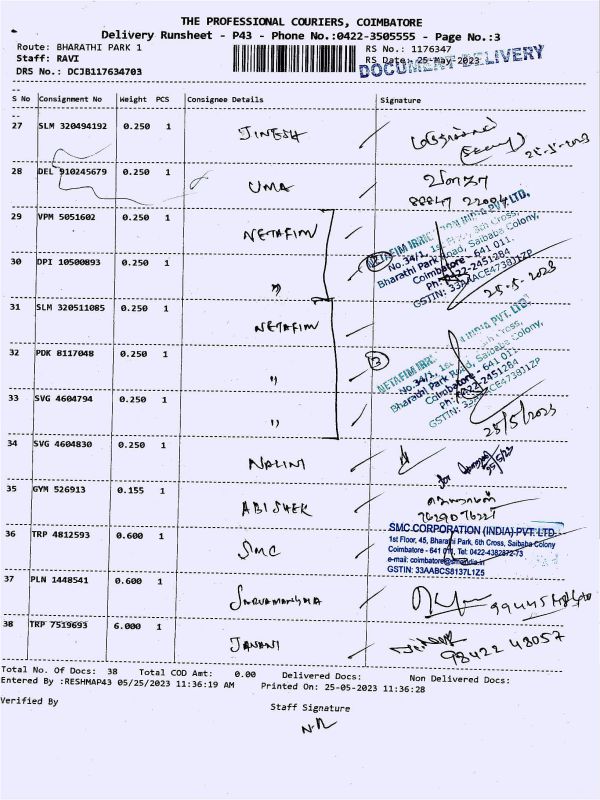 THE PROFESSIONAL COURIERS, COIMBATORE
Delivery Runsheet - P43 - Phone No.:0422-3505555 - Page No.:3
Route: BHARATHI PARK 1
RS No.: 1176347
Staff: RAVI
RS Date: 25-May-2023
DRS No.: DCJB117634703
DOCUMENT DELIVERY
S No Consignment No Weight PCS Consignee Details Signature
27 SLM 320494192 0.250 1 JINESH
25-5-2023
28 DEL 910245679 0.250 1 UMA
88847 22084
29 VPM 5051602 0.250 1 NETAFIM
30 DPI 10500893 0.250 1 "
NETAFIM INDIA PVT. LTD.
No.34/1, Cross,
Bharathi Park Road, Saibaba Colony,
Coimbatore - 641 011.
Ph: 0422-2451284
GSTIN: 33AAACE4738J1ZP
25-5-2023
31 SLM 320511085 0.250 1 NETAFIM
32 PDK 8117048 0.250 1 "
3
33 SVG 4604794 0.250 1 "
NETAFIM INDIA PVT. LTD.
No.34/1, Cross,
Bharathi Park Road, Saibaba Colony,
Coimbatore - 641 011.
Ph: 0422-2451284
GSTIN: 33AAACE4738J1ZP
25/5/2023
34 SVG 4604830 0.250 1 NALINI
25/5/23
35 GYM 526913 0.155 1 ABISHEK
36 TRP 4812593 0.600 1 SMC
SMC CORPORATION (INDIA) PVT. LTD.
1st Floor, 45, Bharathi Park, 6th Cross, Saibaba Colony
Coimbatore - 641 011, Tel: 0422-4382872-73
e-mail: coimbatore@smcindia.in
GSTIN: 33AABCS8137L1Z5
37 PLN 1448541 0.600 1
38 TRP 7519693 6.000 1 JANANI
98422 48057
Total No. Of Docs: 38 Total COD Amt: 0.00 Delivered Docs: Non Delivered Docs:
Entered By :RESHMAP43 05/25/2023 11:36:19 AM Printed On: 25-05-2023 11:36:28
Verified By
Staff Signature